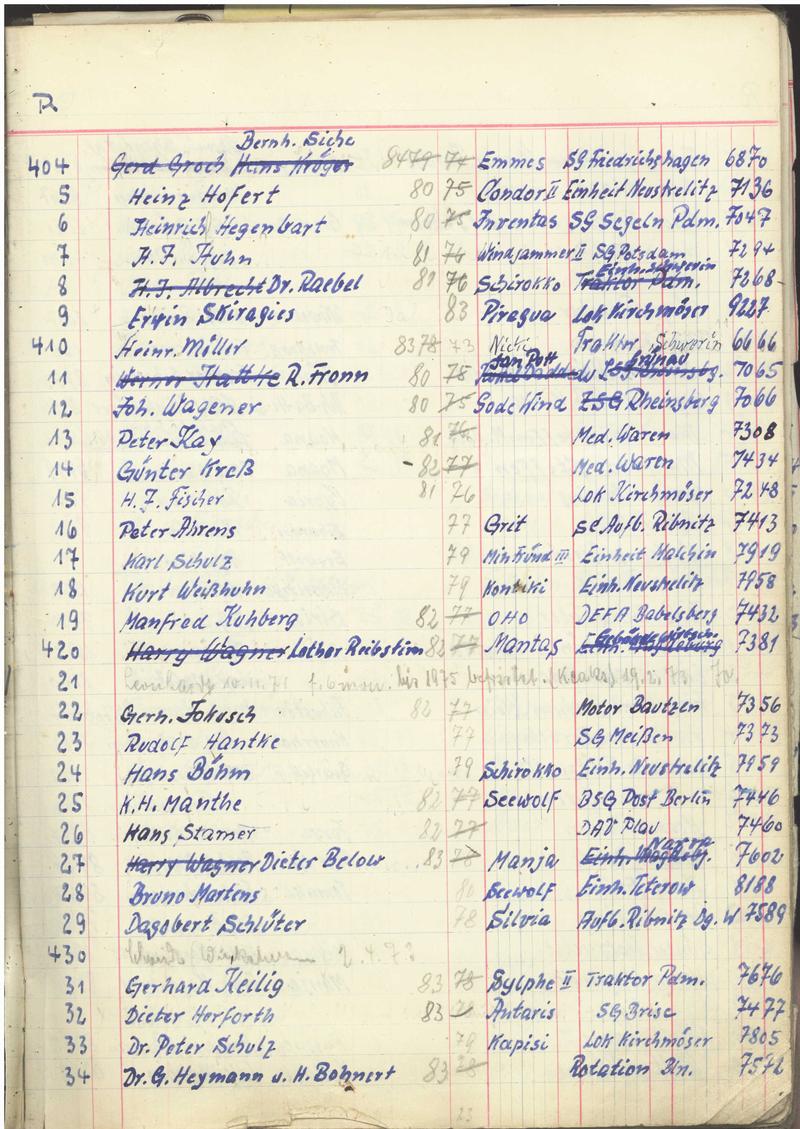 R
Bernh. Siche
404 Gerd Groch Hans Kröger 84 79 74 Emmes SG Friedrichshagen 6870
5 Heinz Hofert 80 75 Condor II Einheit Neustrelitz 7136
6 Heinrich Hegenbart 80 75 Inventas SG Segeln Pdm. 7047
7 H.F. Huhn 81 76 Windjammer II SG Potsdam 7294
Einh. Schwerin
8 H.J. Albrecht Dr. Raebel 81 76 Schirokko Traktor Pdm. 7268
9 Erwin Skiragies 83 Piragua Lok Kirchmöser 9227
410 Heinr. Möller 83 78 73 Nicki Traktor Schwerin 6666
Jan Pott Grünau
11 Werner Hattke R. Fronn 80 78 7065
12 Joh. Wagener 80 75 Gode Wind ZSG Rheinsberg 7066
13 Peter Kay 81 76 Med. Waren 7308
14 Günter Kreß 82 77 Med. Waren 7434
15 H.Z. Fischer 81 76 Lok Kirchmöser 7248
16 Peter Ahrens 77 Grit SC Aufb. Ribnitz 7413
17 Karl Schulz 79 Min Fründ III Einheit Malchin 7919
18 Kurt Weißhuhn 79 Kontiki Einh. Neustrelitz 7958
19 Manfred Kuhberg 82 77 OHO DEFA Babelsberg 7432
420 Harry Wagner Lothar Reibstirn 82 77 Mantas Einh. Magdeburg 7381
21 bis 1975 befristet. (Keaks) 19.2.73
22 Gerh. Jokusch 82 77 Motor Bautzen 7356
23 Rudolf Hantke 77 SG Meißen 7373
24 Hans Böhm 79 Schirokko Einh. Neustrelitz 7959
25 K.H. Manthe 82 77 Seewolf BSG Post Berlin 7446
26 Hans Stamer 82 77 DAV Plau 7460
27 Harry Wagner Dieter Below 83 78 Manja Einh. Magdebg. 7602
28 Bruno Martens 80 Seewolf Einh. Teterow 8188
29 Dagobert Schlüter 78 Silvia Aufb. Ribnitz Dg. W 7589
430 2.4.73
31 Gerhard Keilig 83 78 Sylphe II Traktor Pdm. 7676
32 Dieter Herforth 83 78 Antaris SG Brise 7477
33 Dr. Peter Schulz 79 Kapisi Lok Kirchmöser 7805
34 Dr. G. Heymann u. H. Bohnert 83 78 Rotation Bln. 7572
23